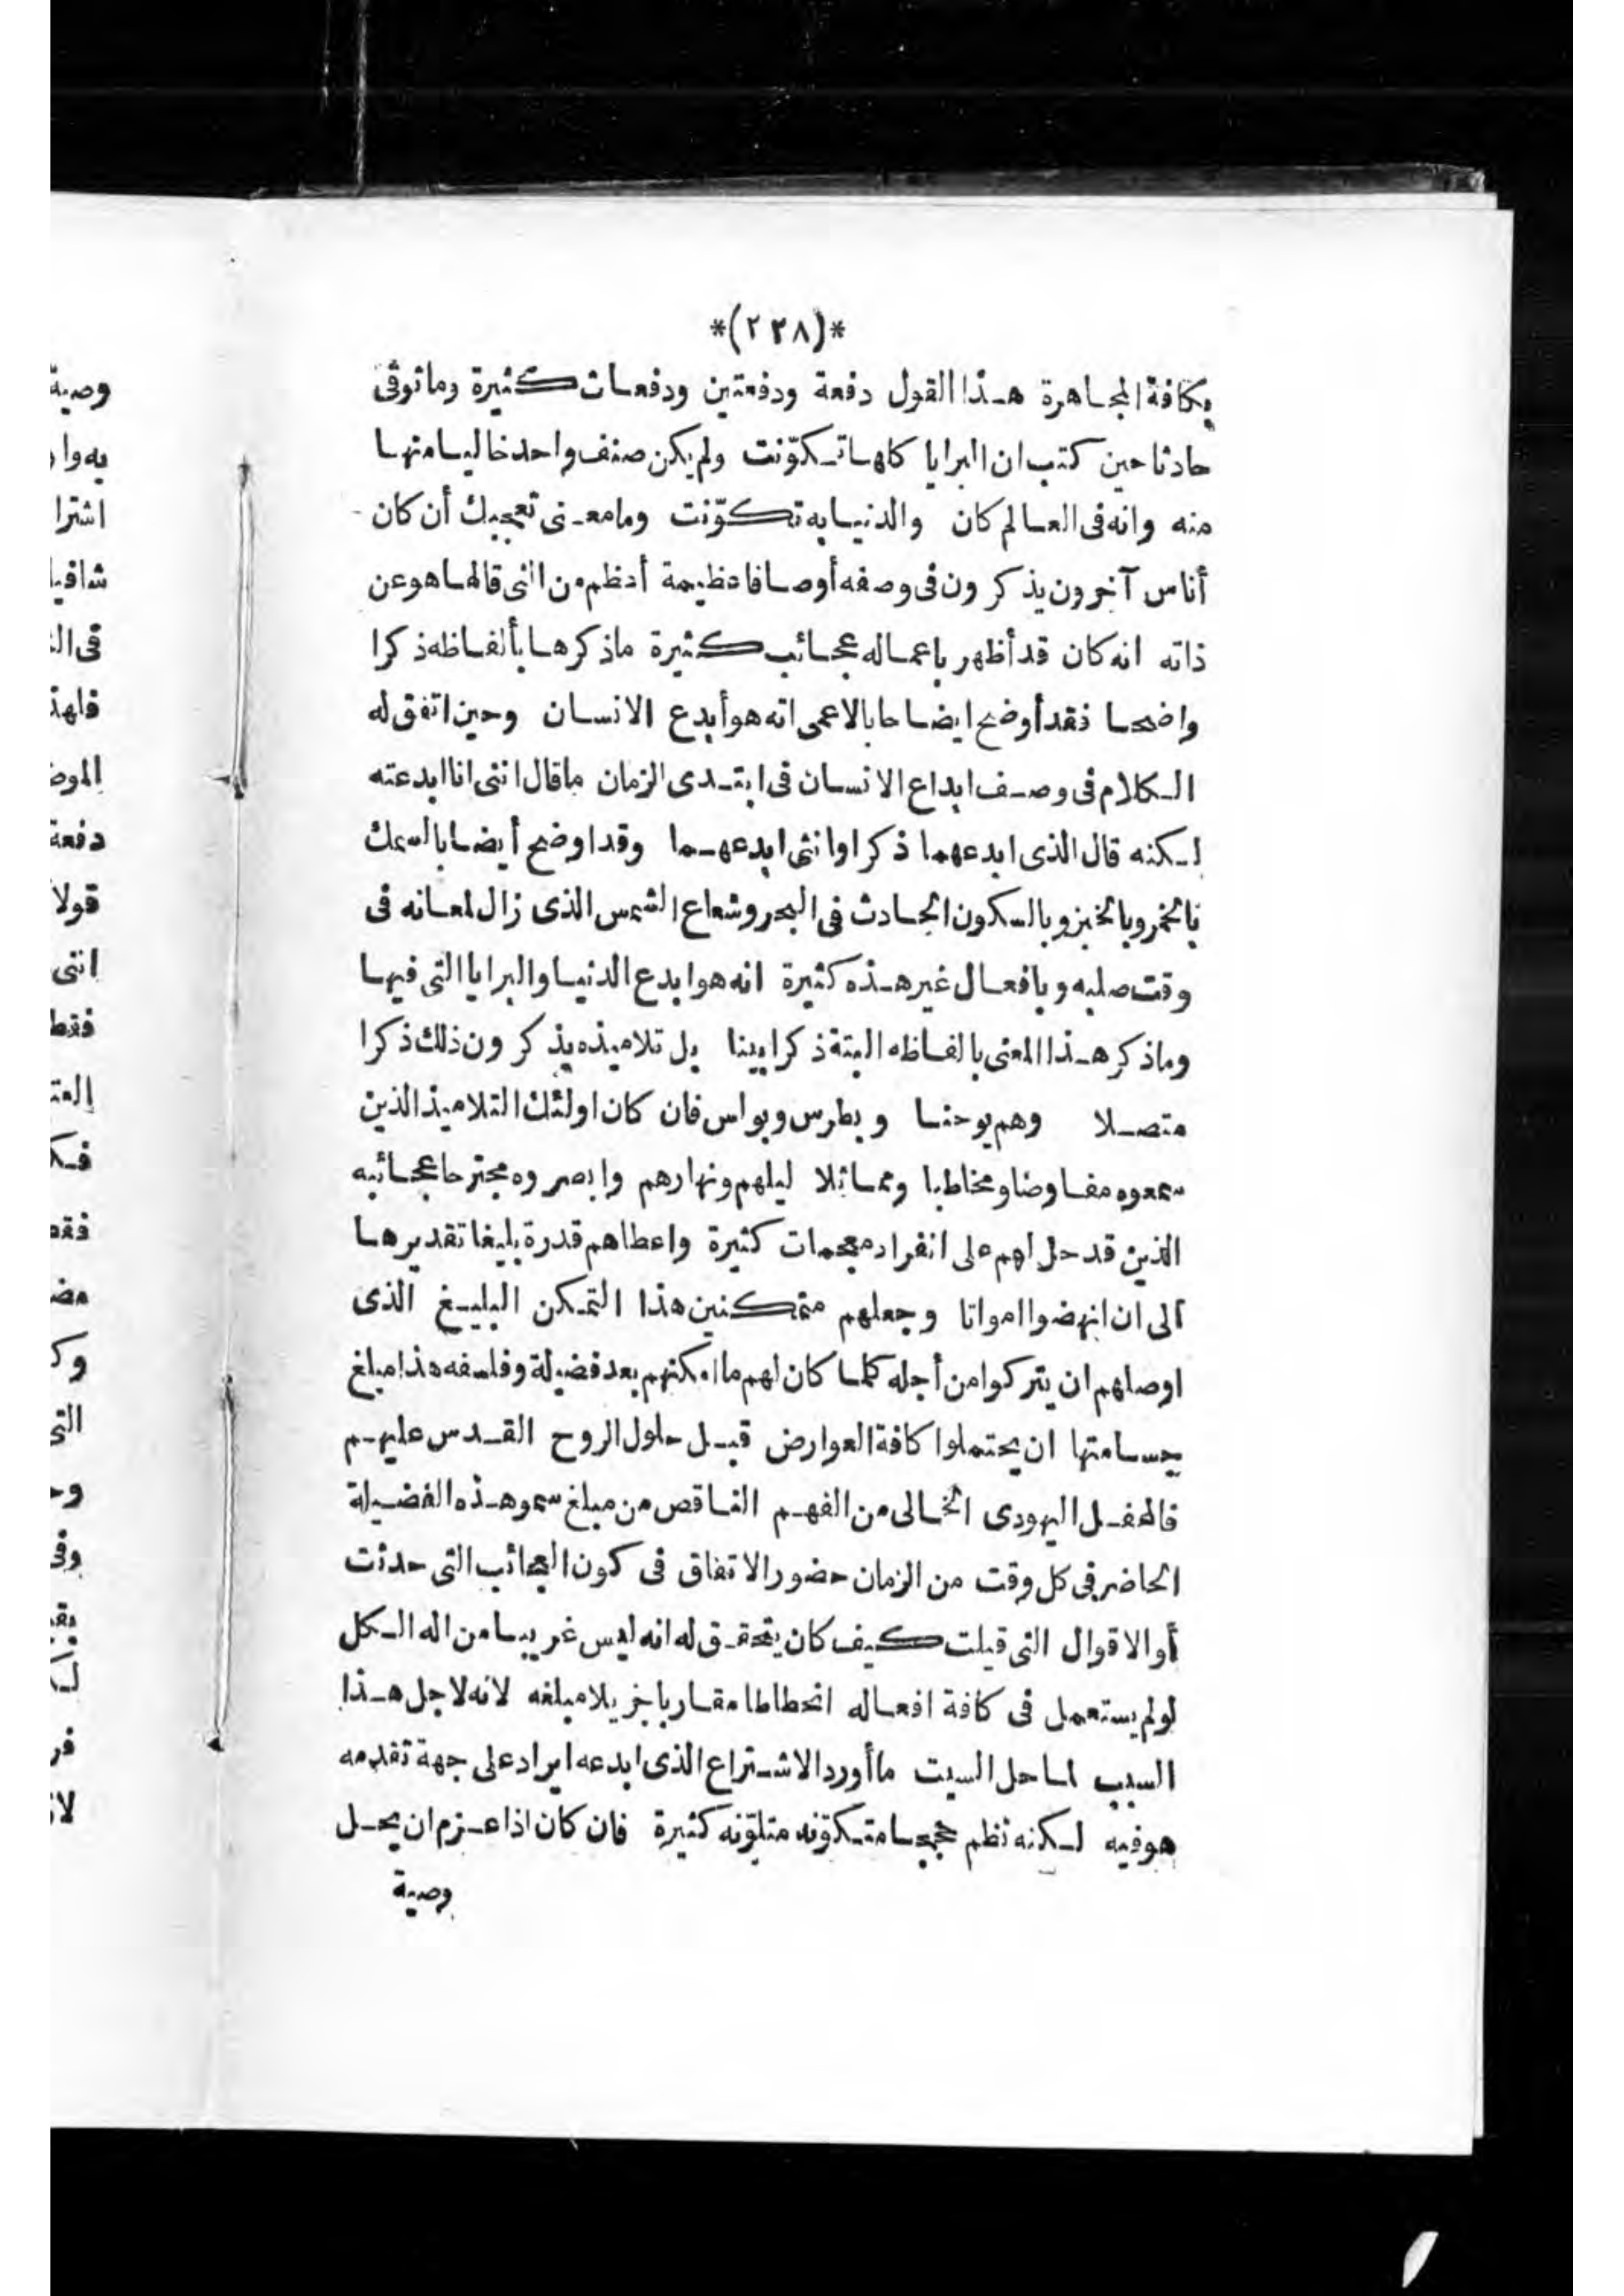 *(٢٣٨)*
بكافة المجاهرة هذا القول دفعة ودفعتين ودفعات كثيرة وماتوقى
حادثا حين كتب ان البرايا كلها تكوّنت ولم يكن صنف واحد خاليا منها
منه وانه فى العالم كان والدنيا به تكوّنت وما معنى تعجبك أن كان
أناس آخرون يذكرون فى وصفه أوصافا عظيمة أعظم من التى قالها هو عن
ذاته انه كان قد أظهر باعماله عجائب كثيرة ماذكرها بألفاظه ذكرا
واضحا فقد أوضح ايضاحا بالاعمى انه هو أبدع الانسان وحين اتفق له
الكلام فى وصف ابداع الانسان فى ابتدى الزمان ماقال اننى انا ابدعته
لكنه قال الذى ابدعهما ذكرا وانثى ابدعهما وقد اوضح أيضا بالسمك
بالخمر وبالخبز وبالسكون الحادث فى البحر وشعاع الشمس الذى زال لمعانه فى
وقت صلبه وبافعال غير هذه كثيرة انه هو ابدع الدنيا والبرايا التى فيها
وماذكر هذا المعنى بالفاظه البتة ذكرا بينا بل تلاميذه يذكرون ذلك ذكرا
متصلا وهم يوحنا وبطرس وبولس فان كان اولئك التلاميذ الذين
سمعوه مفاوضا ومخاطبا ومماثلا ليلهم ونهارهم وابصروه مجترحا عجائبه
الذين قد حل لهم على انفراد معجمات كثيرة واعطاهم قدرة بليغا تقديرها
الى ان انهضوا امواتا وجعلهم متمكنين هذا التمكن البليغ الذى
اوصلهم ان يتركوا من أجله كلما كان لهم ماامكنهم بعد فضيلة وفلسفه هذا مبلغ
جسامتها ان يحتملوا كافة العوارض قبل حلول الروح القدس عليهم
فالمحفل اليهودى الخالى من الفهم الناقص من مبلغ سمو هذه الفضيلة
الحاضر فى كل وقت من الزمان حضور الاتفاق فى كون العجائب التى حدثت
أو الاقوال التى قيلت كيف كان يتحقق له انه ليس غريبا من اله الكل
لو لم يستعمل فى كافة افعاله انحطاطا مقاربا جزيلا مبلغه لانه لاجل هذا
السبب لما حل السبت ماأورد الاشتراع الذى ابدعه ايراد على جهة تقدمه
هوفيه لكنه نظم حججا متكوّنه متلوّنه كثيرة فان كان اذا عزم ان يحل
وصية